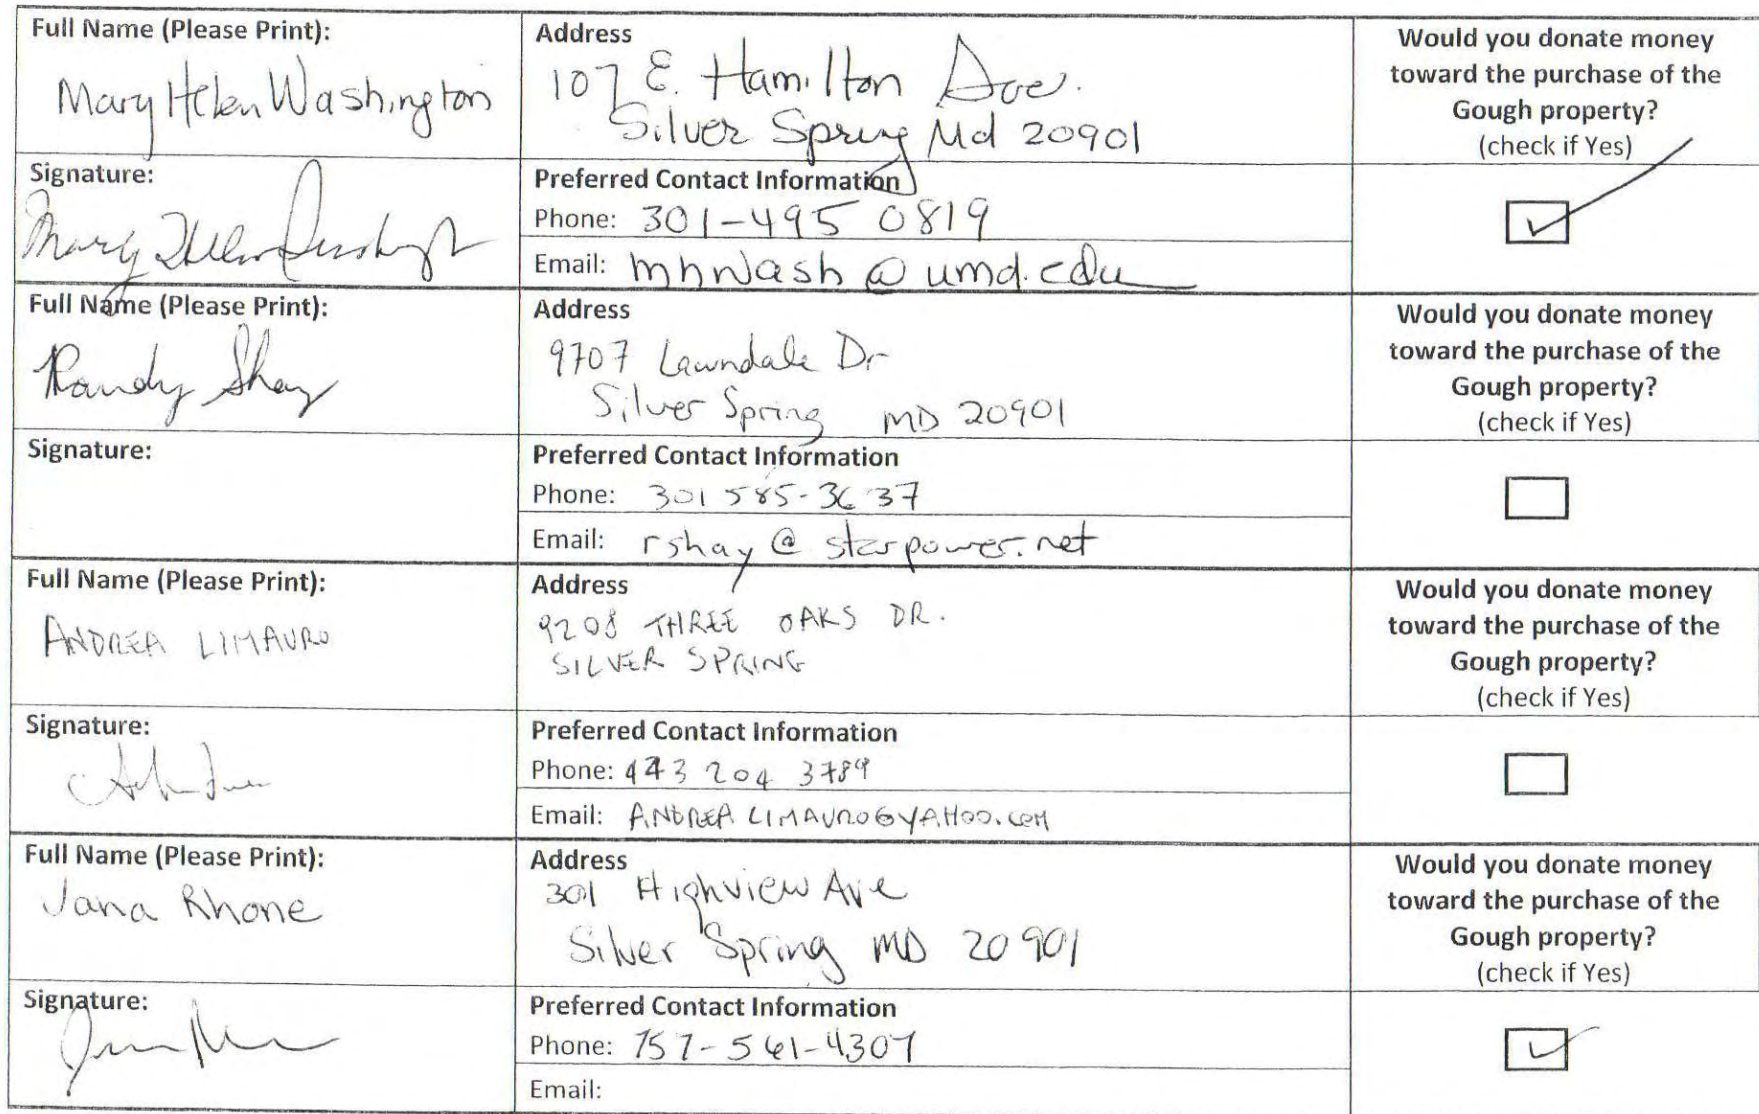 Full Name (Please Print):
Mary Helen Washington
Address
107 E. Hamilton Ave.
Silver Spring Md 20901
Would you donate money
toward the purchase of the
Gough property?
(check if Yes)
Signature:
Mary Helen Washington
Preferred Contact Information
Phone: 301-495 0819
Email: mhwash@umd.edu
Full Name (Please Print):
Randy Shay
Address
9707 Lawndale Dr
Silver Spring MD 20901
Would you donate money
toward the purchase of the
Gough property?
(check if Yes)
Signature:
Preferred Contact Information
Phone: 301 585-3637
Email: rshay@starpower.net
Full Name (Please Print):
ANDREA LIMAURO
Address
9208 THREE OAKS DR.
SILVER SPRING
Would you donate money
toward the purchase of the
Gough property?
(check if Yes)
Signature:
Preferred Contact Information
Phone: 443 204 3789
Email: ANDREA LIMAURO@YAHOO.COM
Full Name (Please Print):
Jana Rhone
Address
301 Highview Ave
Silver Spring MD 20901
Would you donate money
toward the purchase of the
Gough property?
(check if Yes)
Signature:
Preferred Contact Information
Phone: 757-561-4307
Email: